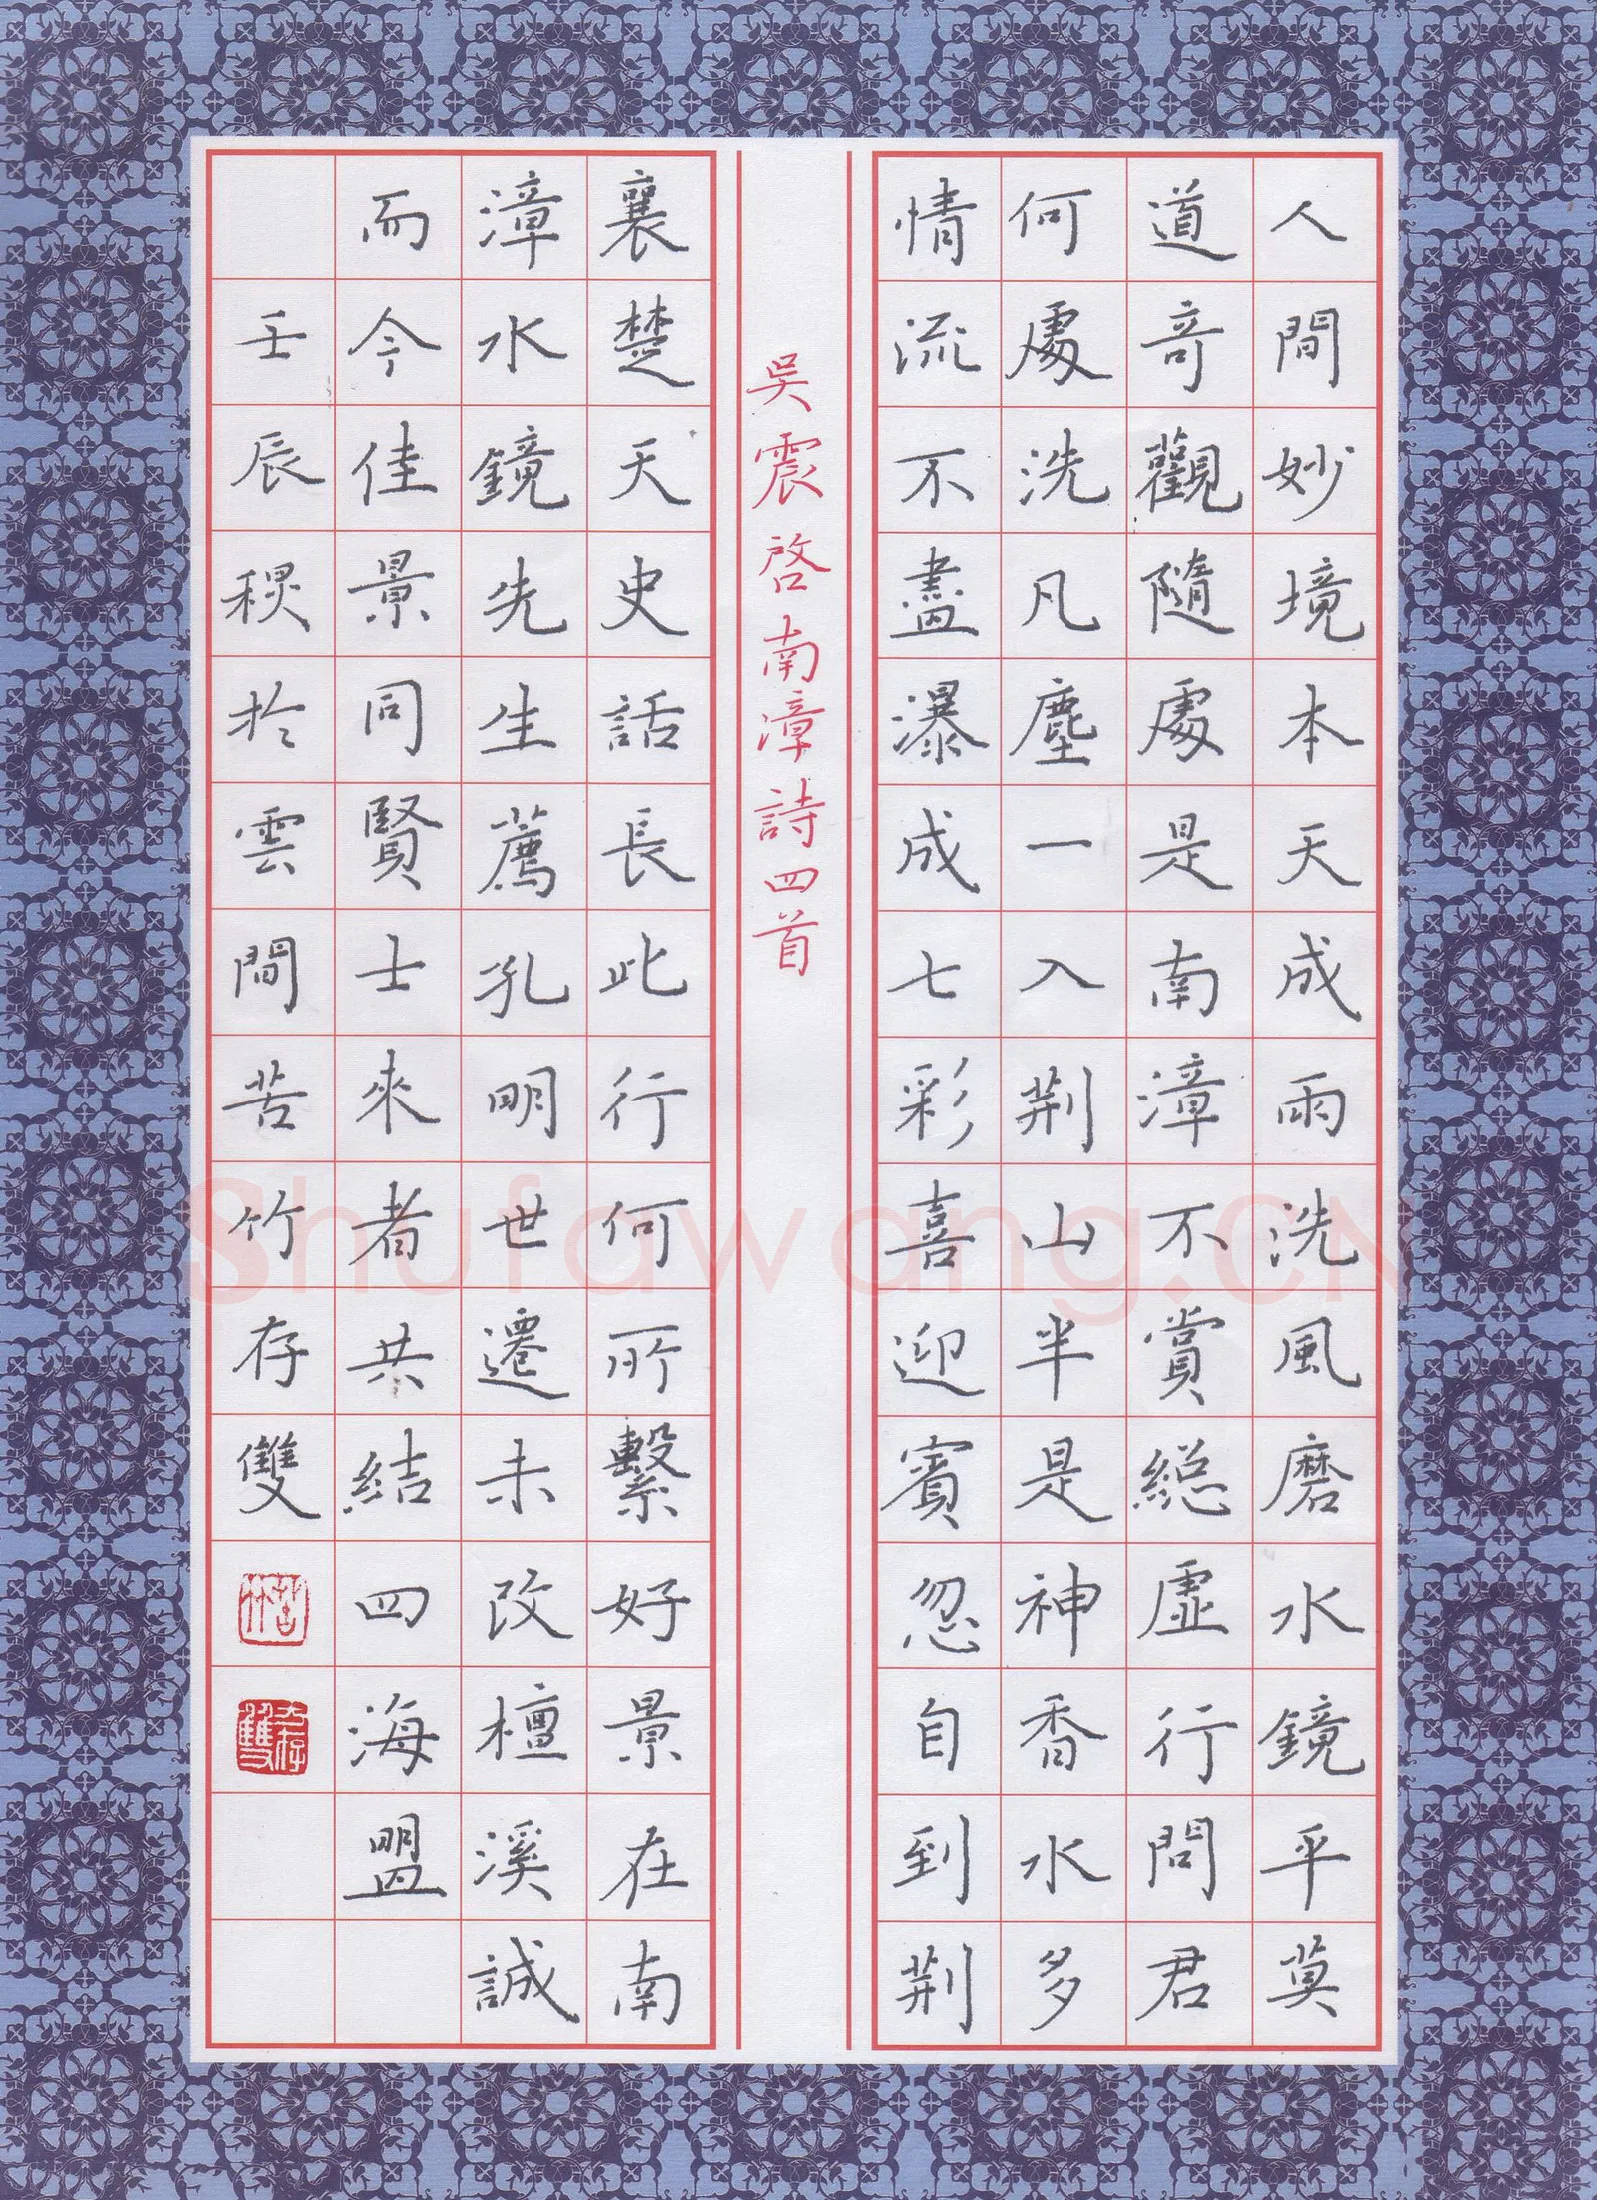 人間妙境本天成雨洗風磨水鏡平莫
道奇觀隨處是南漳不賞總虛行問君
何處洗凡塵一入荆山半是神香水多
情流不盡瀑成七彩喜迎賓忽自到荆
吳震啓南漳詩四首
襄楚天史話長此行何所繫好景在南
漳水鏡先生薦孔明世遷未改檀溪誠
而今佳景同賢士來者共結四海盟
壬辰穓於雲間苦竹存雙
苦竹
存雙
Shufawang.CN